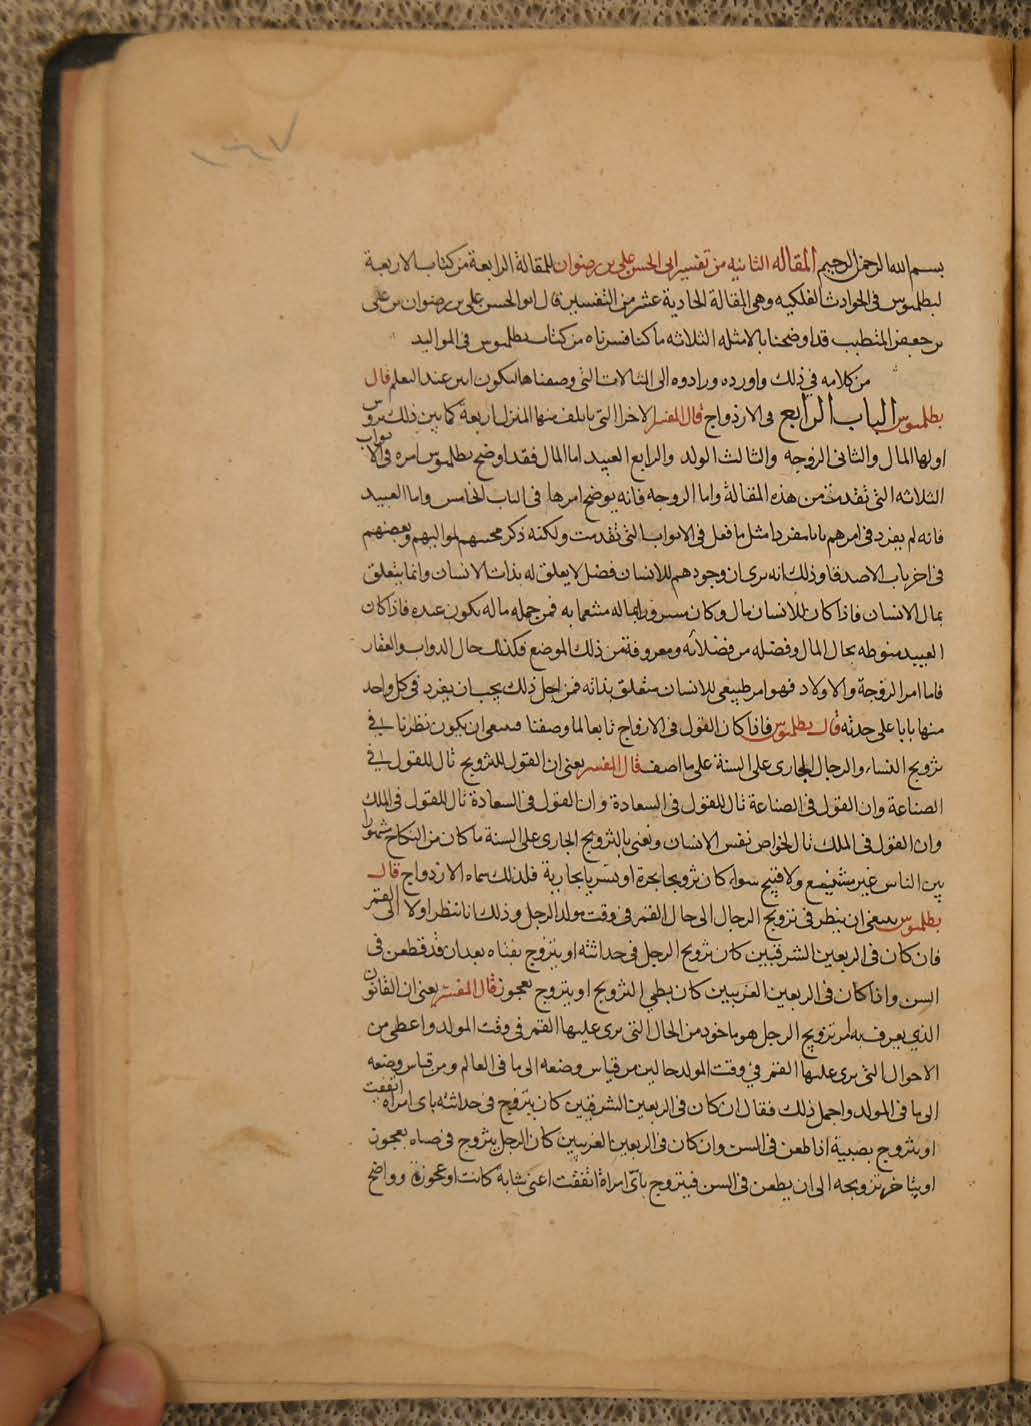 بسم الله الرحمن الرحيم المقاله الثانيه من تفسير ابى الحسن على بن رضوان للمقالة الرابعة من كتاب الاربعة
لبطلميوس فى الحوادث الفلكيه وهى المقالة الحادية عشر من التفسير قال ابو الحسن على بن رضوان بن على
بن جعفر المتطبب قد اوضحنا بالامثله الثلاثه ما كنا فسرناه من كتاب بطلميوس فى المواليد
من كلامه فى ذلك واورده ورادوه الى المثالات التى وصفناها ليكون ابين عند التعلم قال
بطلميوس الباب الرابع فى الازدواج قال المفسر الاجزا التى ياتلف منها المنزل اربعة كما بين ذلك بروس
اولها المال والثانى الزوجه والثالث الولد والرابع العبيد اما المال فقد اوضح بطلميوس امره فى الابواب
الثلاثه التى تقدمت من هذه المقالة واما الزوجه فانه يوضح امرها فى الباب الخامس واما العبيد
فانه لم يفرد فى امرهم بابا مفردا مثل ما فعل فى الابواب التى تقدمت ولكنه ذكر محبتهم لمواليهم وبغضهم
فى اخر باب الاصدقا وذلك انه يرى ان وجودهم للانسان فضل لا يعلق له بذات الانسان وانما يتعلق
بمال الانسان فاذا كان للانسان مال وكان مسرورا بماله متنعما به فمن جمله ماله يكون عبده فاذا كان
العبيد منوطه بحال المال وفضله من فضلاته ومعروفة من ذلك الموضع فكذلك حال الدواب والعقار
فاما امر الزوجة والاولاد فهو امر طبيعى للانسان متعلق بذاته فمن اجل ذلك يجب ان يفرد فى كل واحد
منها بابا على حدته قال بطلميوس فاذا كان القول فى الازواج تابعا لما وصفنا فينبغى ان يكون نظرنا فى
تزويج النساء والرجال الجارى على السنة على ما اصف قال المفسر يعنى ان القول للتزويج تال للقول فى
الصناعة وان القول فى الصناعة تال للقول فى السعادة وان القول فى السعادة تال للقول فى الملك
وان القول فى الملك تال لخواص نفس الانسان ويعنى بالتزويج الجارى على السنة ما كان من النكاح مشهورا
بين الناس غير مشنع ولا قبيح سواء كان تزويجا بحرة او تسريا بجارية فلذلك سماه الازدواج قال
بطلميوس ينبغى ان ينظر فى تزويج الرجال الى حال القمر فى وقت مولد الرجل وذلك انا ننظر اولا الى القمر
فان كان فى الربعين الشرقيين كان تزويج الرجل فى حداثته او يتزوج بفتاه بعد ان قد قطعن فى
السن واذا كان فى الربعين الغربيين كان بطى التزويج او يتزوج بعجوز قال المفسر يعنى ان القانون
الذى يعرف به امر تزويج الرجل هو ماخوذ من الحال التى يرى عليها القمر فى وقت المولد واعطى من
الاحوال التى يرى عليها القمر فى وقت المولد حالين من قياس وضعه الى ما فى العالم ومن قياس وضعه
الى ما فى المولد واجمل ذلك فقال ان كان فى الربعين الشرقيين كان يتزوج فى حداثته باى امراة اتفقت
او يتزوج بصبية اذا طعن فى السن وان كان فى الربعين الغربيين كان الرجل يتزوج فى صباه بعجوز
او يتاخر تزويجه الى ان يطعن فى السن فيتزوج باى امراة اتفقت اعنى شابة كانت او عجوزة وواضح